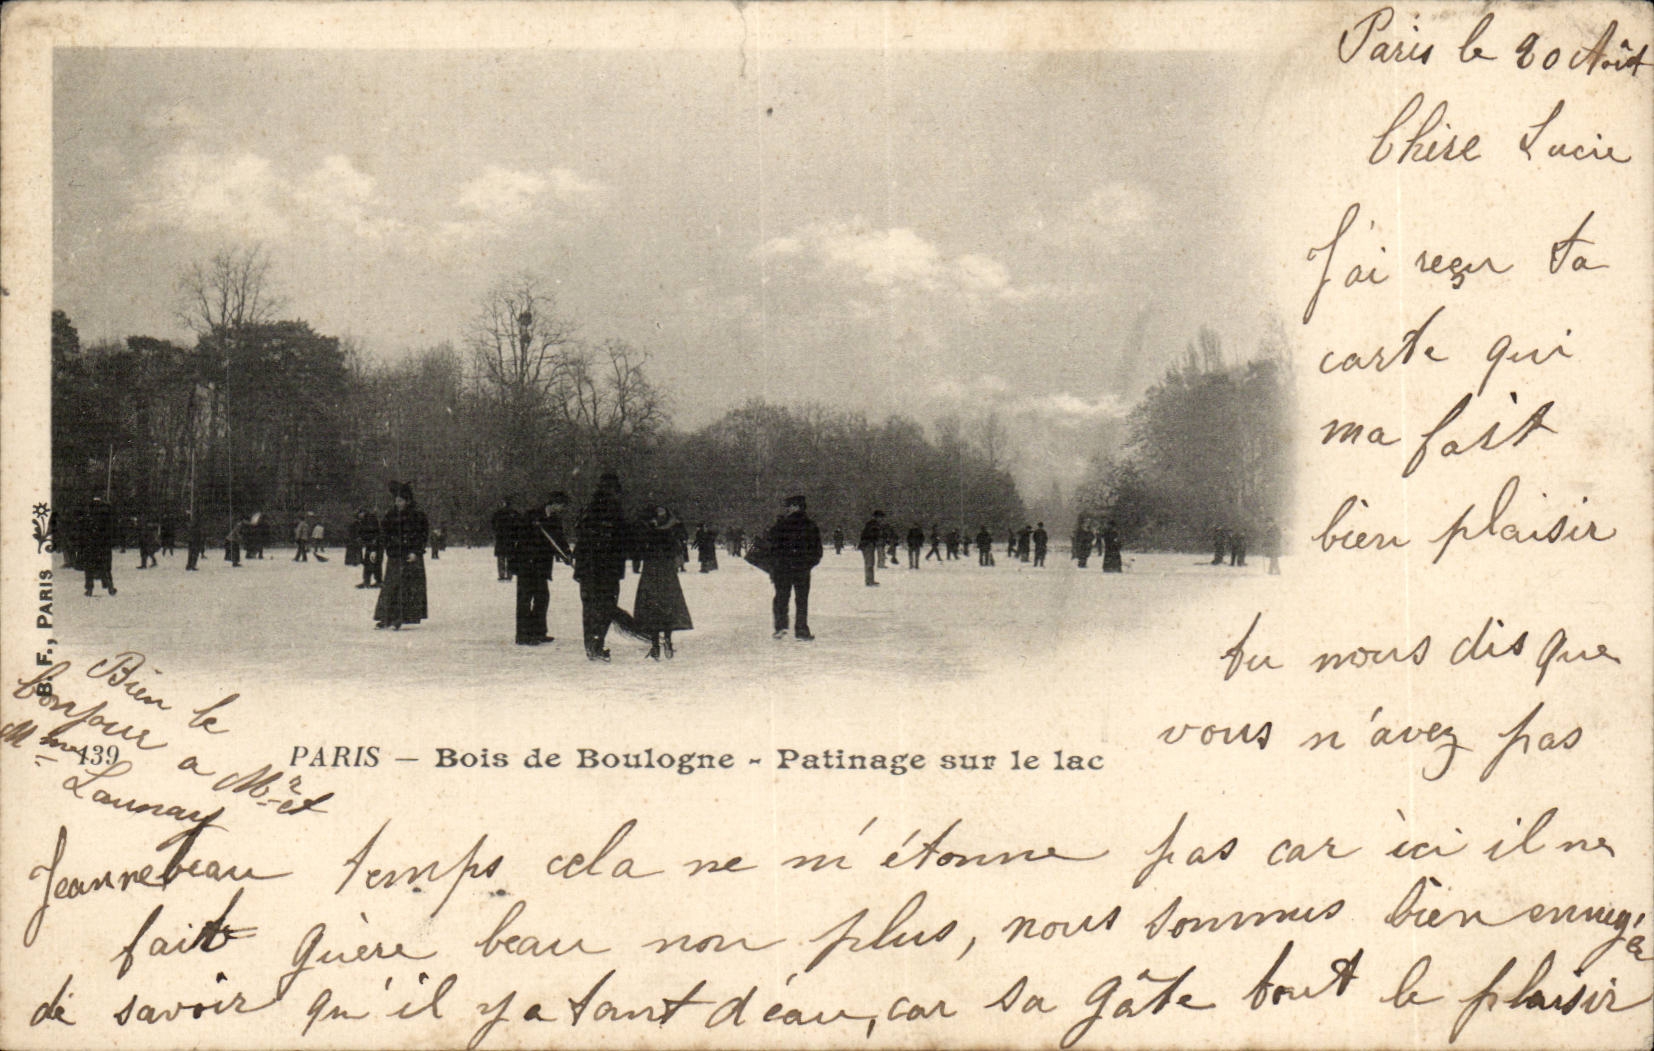 Paris le 20 Août
Chère Lucie
J'ai reçu ta
carte qui
ma fait
bien plaisir
tu nous dis que
vous n'avez pas
beau temps cela ne m'étonne pas car ici il ne
fait guère beau non plus, nous sommes bien
de savoir qu'il y a tant d'eau, car sa gâte tout le plaisir
Bien le
bonjour a Mr et
Mme Launay
Jeanne
B. F., PARIS
439
PARIS — Bois de Boulogne - Patinage sur le lac